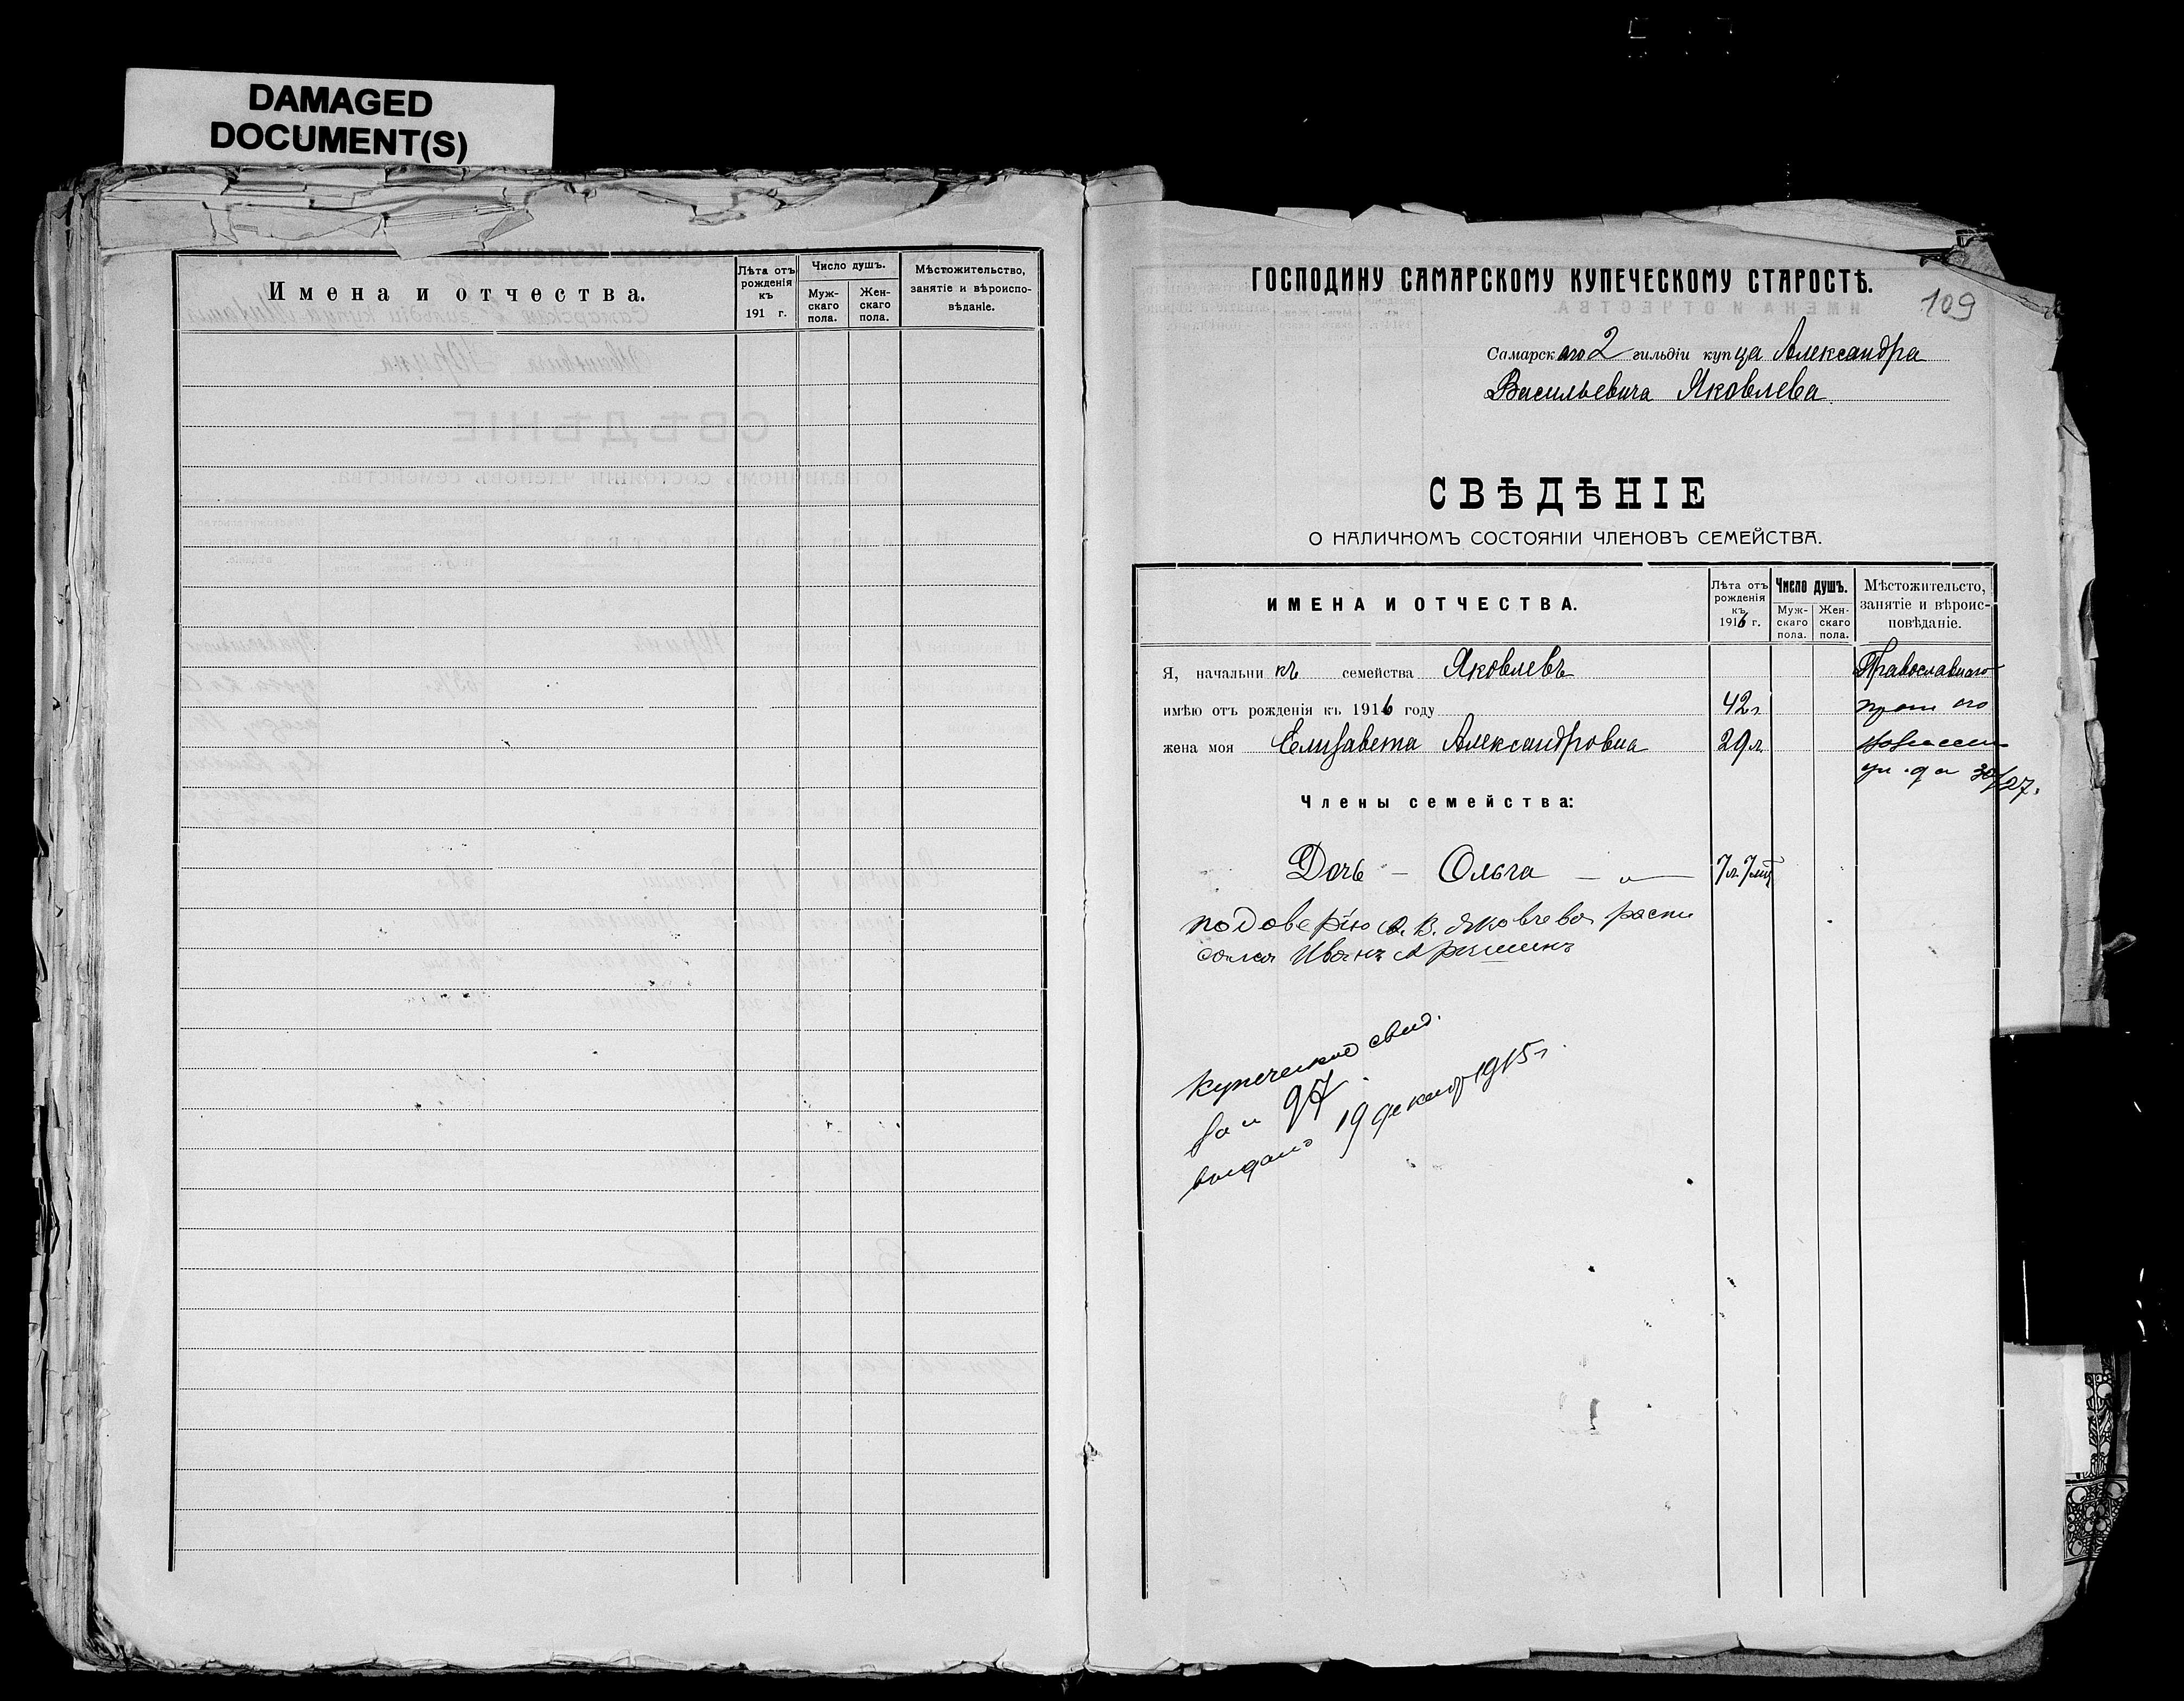 DAMAGED
DOCUMENT(S)
Имена и отчества.
Лѣта отъ рожденія къ 191 г.
Число душъ.
Муж-
скаго
пола.
Жен-
скаго
пола.
Мѣстожительство,
занятіе и вѣроиспо-
вѣданіе.
ГОСПОДИНУ САМАРСКОМУ КУПЕЧЕСКОМУ СТАРОСТѢ.
109
Самарскаго 2 гильдіи купца Александра
Васильевича Яковлева
СВѢДѢНІЕ
О НАЛИЧНОМЪ СОСТОЯНІИ ЧЛЕНОВЪ СЕМЕЙСТВА.
ИМЕНА И ОТЧЕСТВА.
Лѣта отъ
рожденія
къ
1916 г.
Число душъ.
Муж-
скаго
пола.
Жен-
скаго
пола.
Мѣстожительсто,
занятіе и вѣроис-
повѣданіе.
Я, начальникъ семейства Яковлевъ
Православнаго
имѣю отъ рожденія къ 1916 году 42 г
жена моя Елизавета Александровна 29 л.
ул. д. 30/27.
Члены семейства:
Дочь - Ольга - " - 7 л. 7 мц
по доверiю А. В. Яковлева распи
сался Иванъ
Купеческое свид.
за № 97
выдано 19 декабр 1915 г.